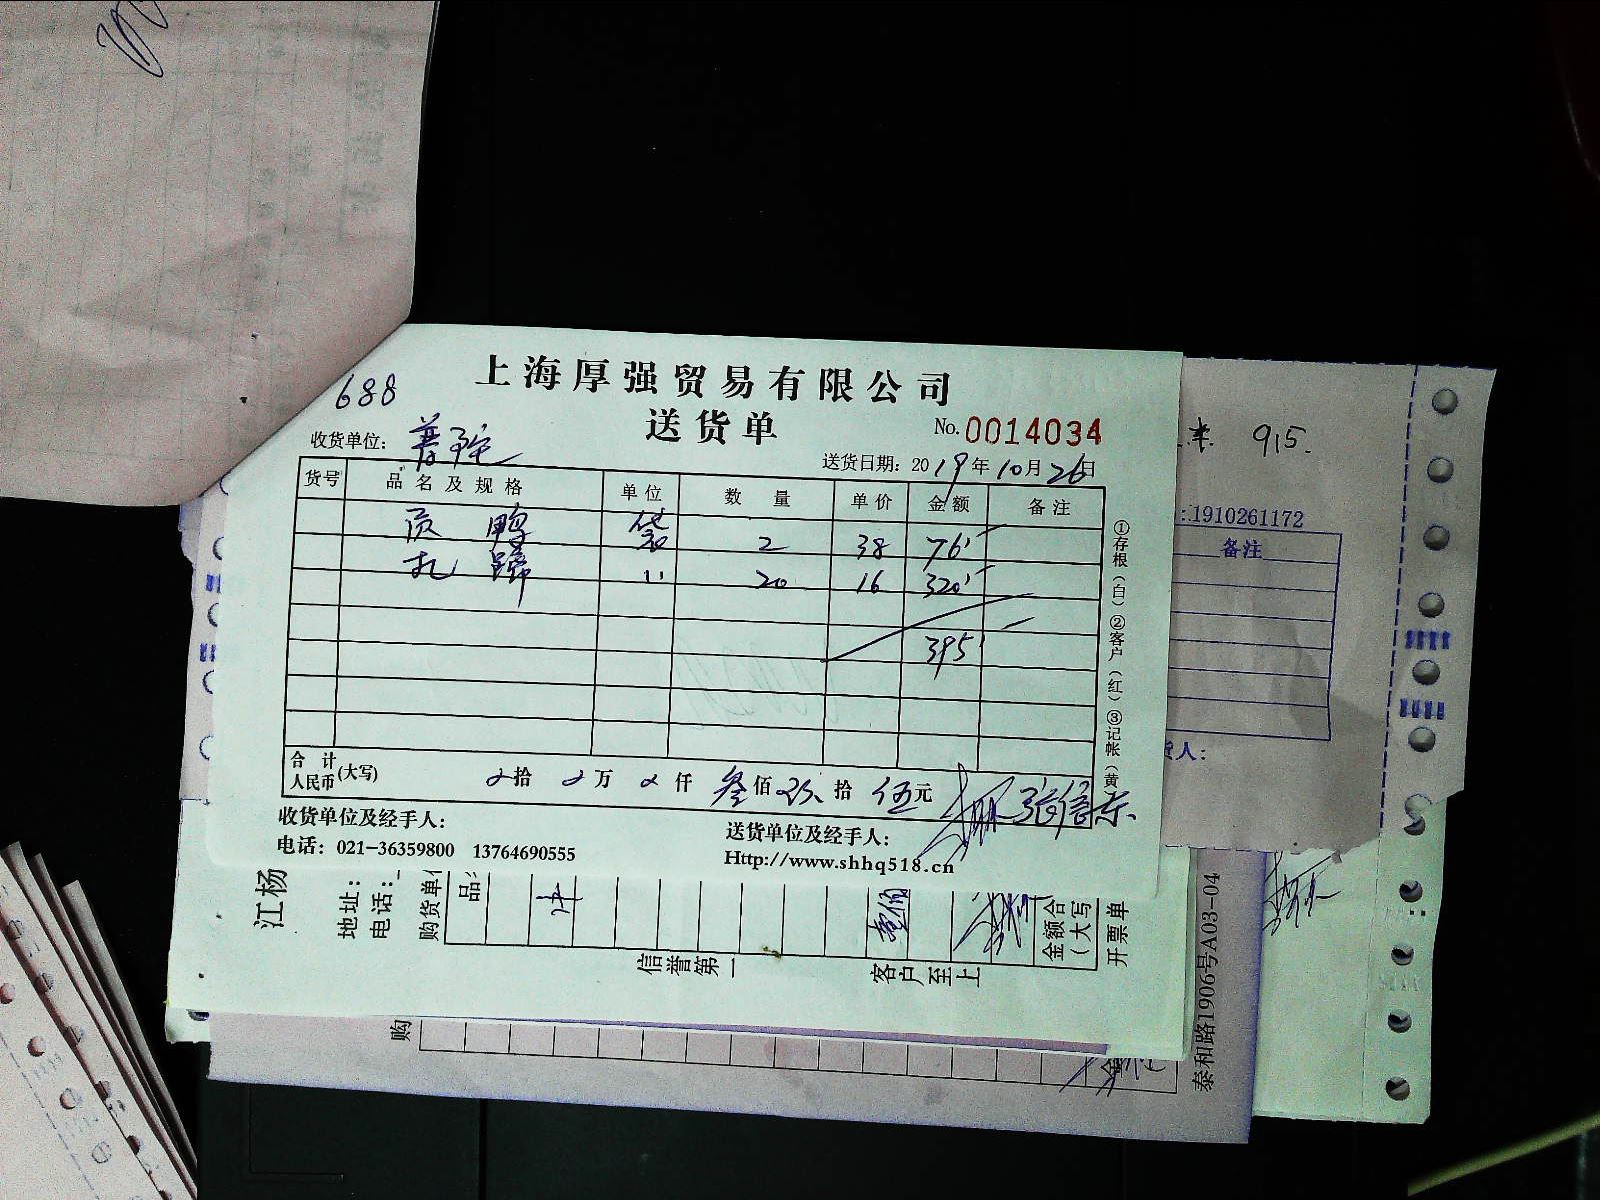 688
上海厚强贸易有限公司
送货单
No. 0014034
收货单位：普陀
送货日期：2019年10月26日
货号 品名及规格 单位 数量 单价 金额 备注
鸭 袋 2 38 76
扎蹄 〃 20 16 320
395
合计人民币(大写) 拾 万 仟 叁佰玖拾伍元
收货单位及经手人：
送货单位及经手人：
电话：021-36359800 13764690555
Http://www.shhq518.cn
①存根（白）②客户（红）③记帐（黄
915.
:1910261172
备注
货人：
江杨
地址：
电话：
购货单位
品
信誉第一
客户至上
金额合
（大写
开票单
购
泰和路1906号A03-04